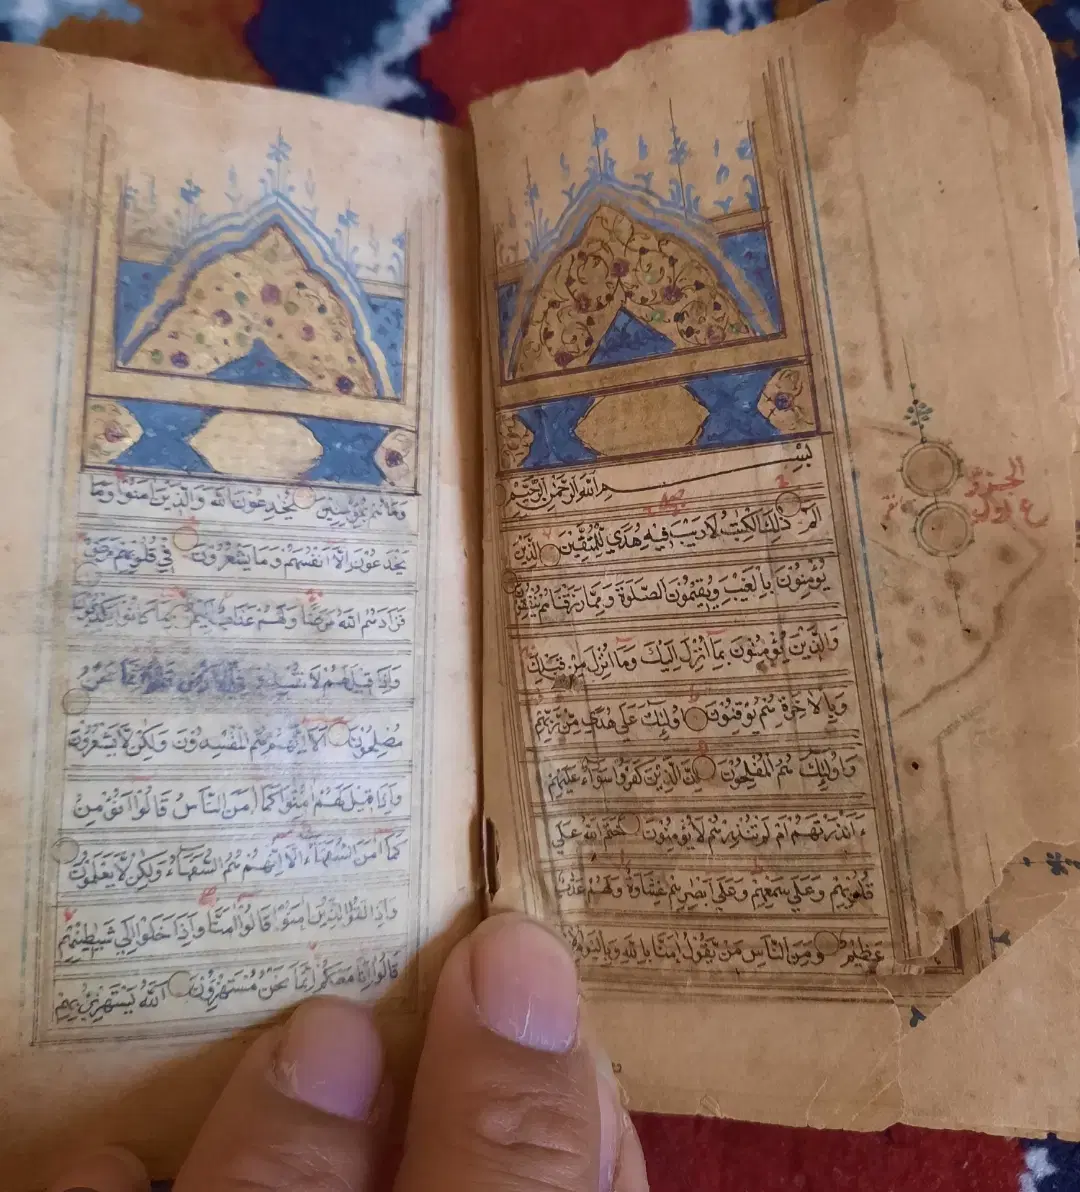 بسم الله الرحمن الرحيم
الم ذٰلك الكتٰب لا ريب فيه هدي للمتقين الذين
يؤمنون بالغيب ويقيمون الصلوة ومما رزقناهم ينفقون
والذين يؤمنون بما انزل اليك وما انزل من قبلك
وبالاخرة هم يوقنون اولئك علي هدي من ربهم
واولئك هم المفلحون ان الذين كفروا سواء عليهم
ءانذرتهم ام لم تنذرهم لا يؤمنون ختم الله علي
قلوبهم وعلي سمعهم وعلي ابصرهم غشاوة ولهم عذاب
عظيم ومن الناس من يقول امنا بالله وباليوم
الجزو
الاول
وما هم بمؤمنين يخدعون الله والذين امنوا وما
يخدعون الا انفسهم وما يشعرون في قلوبهم مرض
فزادهم الله مرضا ولهم عذاب اليم بما كانوا يكذبون
واذا قيل لهم لا تفسدوا في الارض قالوا انما نحن
مصلحون الا انهم هم المفسدون ولكن لا يشعرون
واذا قيل لهم امنوا كما امن الناس قالوا انؤمن
كما امن السفهاء الا انهم هم السفهاء ولكن لا يعلمون
واذا لقوا الذين امنوا قالوا امنا واذا خلوا الي شيطينهم
قالوا انا معكم انما نحن مستهزؤن الله يستهزئ بهم